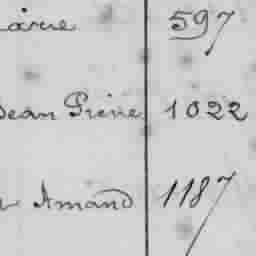 Marie 597
Jean Pierre 1022
Amand 1187